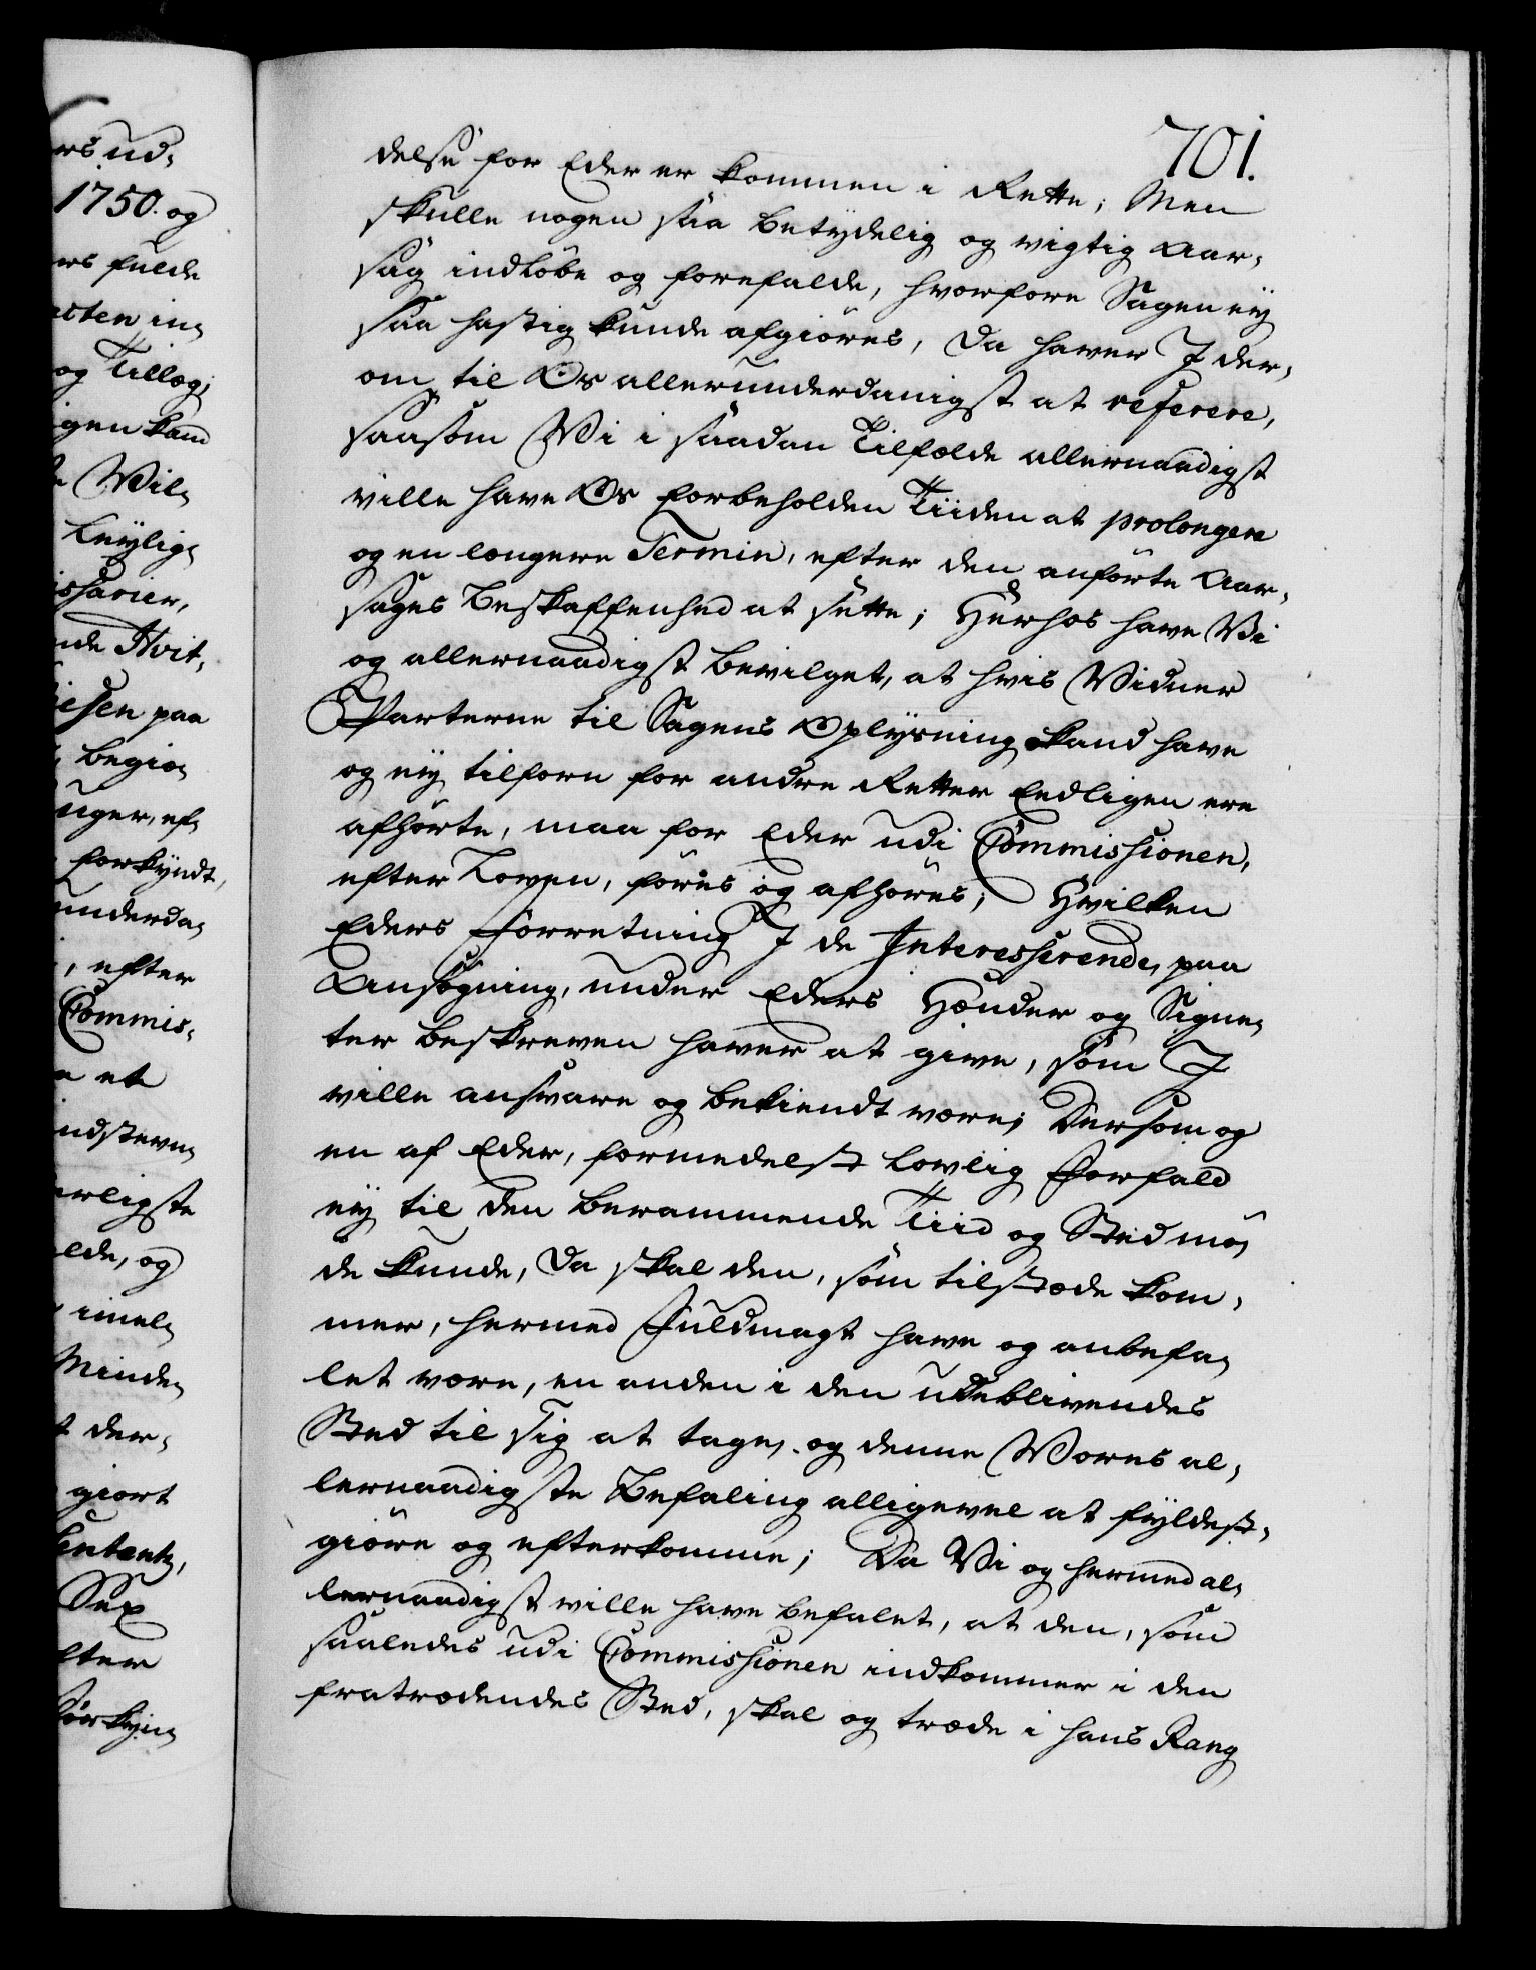 701.
delse for Eder er kommen i Rette; Men
skulle nogen saa betydelig og vigtig Aar-
sag indløbe og forefalde, hvorfore Sagen ey
saa hastig kunde afgiøres, da haver I der-
om til Os allerunderdanigst at referere,
saasom Vi i saadan Tilfælde allernaadigst
ville have Os forbeholden Tiiden at prolongere
og en længere Termin, efter den anførte Aar-
sages Beskaffenhed at sette; Herhos have Vi
og allernaadigst bevilget, at hvis Vidner
Parterne til Sagens Oplysning kand have
og ey tilforn for andre Retter Eedligen ere
afhørte, maa for Eder udi Commissionen,
efter Loven, føres og afhøres; Hvilken
Eders Forretning I de Interesserende, paa
Ansøgning, under Eders Hænder og Signe-
ter beskreven haver at give, som I
ville ansvare og bekiendt være; Dersom og
en af Eder, formedelst lovlig Forfald
ey til den berammende Tiid og Sted mø-
de kunde, da skal den, som tilstæde kom-
mer, hermed Fuldmagt have og anbefa-
let være, en anden i den udeblivendes
Sted til sig at tage, og denne Vores al-
lernaadigste Befaling alligevel at fyldest-
giøre og efterkomme; Da Vi og hermed al-
lernaadigst ville have befalet, at den, som
saaledes udi Commissionen indkommer i den
fratrædendes Sted, skal og træde i hans Rang